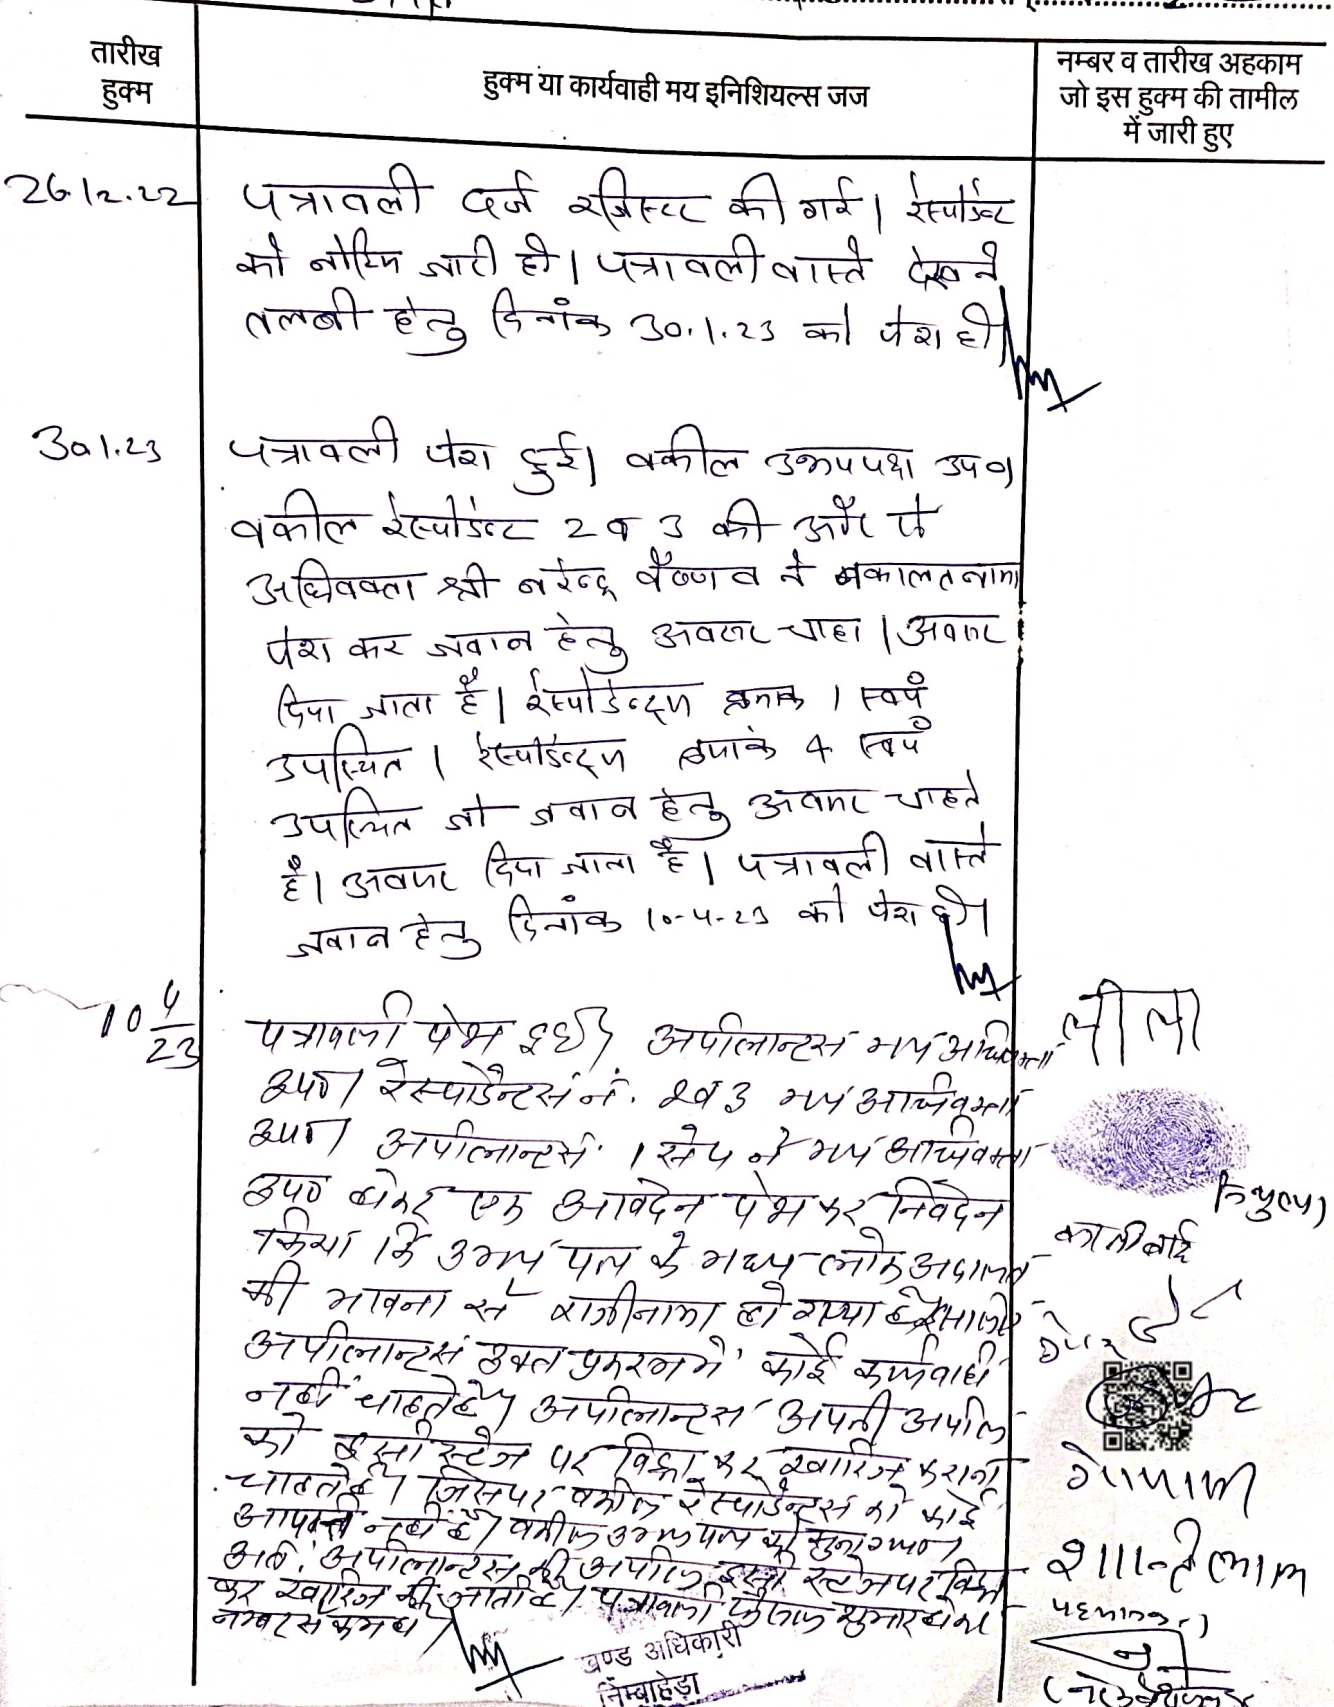 तारीख
हुक्म
हुक्म या कार्यवाही मय इनिशियल्स जज
नम्बर व तारीख अहकाम
जो इस हुक्म की तामील
में जारी हुए
26.12.22
पत्रावली दर्ज रजिस्टर की गई। रेस्पोडेंट
को नोटिस जारी हो। पत्रावली वास्ते देखने
तलबी हेतु दिनांक 30.1.23 को पेश हो
30.1.23
पत्रावली पेश हुई। वकील उभयपक्ष उप०।
वकील रेस्पोडेंट 2 व 3 की और से
अधिवक्ता श्री नरेन्द्र वैष्णव ने वकालतनामा
पेश कर जवाब हेतु अवसर चाहा। अवसर
दिया जाता है। रेस्पोडेन्ट्स क्रमांक 1 स्वयं
उपस्थित। रेस्पोडेन्ट्स क्रमांक 4 स्वयं
उपस्थित जो जवाब हेतु अवसर चाहते
है। अवसर दिया जाता है। पत्रावली वास्ते
जवाब हेतु दिनांक 10-4-23 को पेश हो।
10 4/23
पत्रावली पेश हुई। अपीलान्टस मय अधिवक्ता
उप०। रेस्पोडेन्टस नं. 2 व 3 मय अधिवक्ता
उप०। अपीलान्टस 1 से 4 ने मय अधिवक्ता
उप० होकर एक आवेदन पेश कर निवेदन
किया कि उभय पक्ष के मध्य लोक अदालत
की भावना से राजीनामा हो गया है इसलिये
अपीलान्टस उक्त प्रकरण में कोई कार्यवाही
नहीं चाहते है। अपीलान्टस अपनी अपील
को इसी स्टेज पर विड्रा कर खारिज कराना
चाहते है। जिस पर वकील रेस्पोडेन्टस को कोई
आपत्ति नहीं है। वकील उभय पक्ष को सुना गया।
अतः अपीलान्टस की अपील इसी स्टेज पर विड्रा
कर खारिज की जाती है। पत्रावली फैसल शुमार होकर
नम्बर से कम हो।
खण्ड अधिकारी
निम्बाहेड़ा
लीला
काली बाई
गोपाल
शान्तिलाल